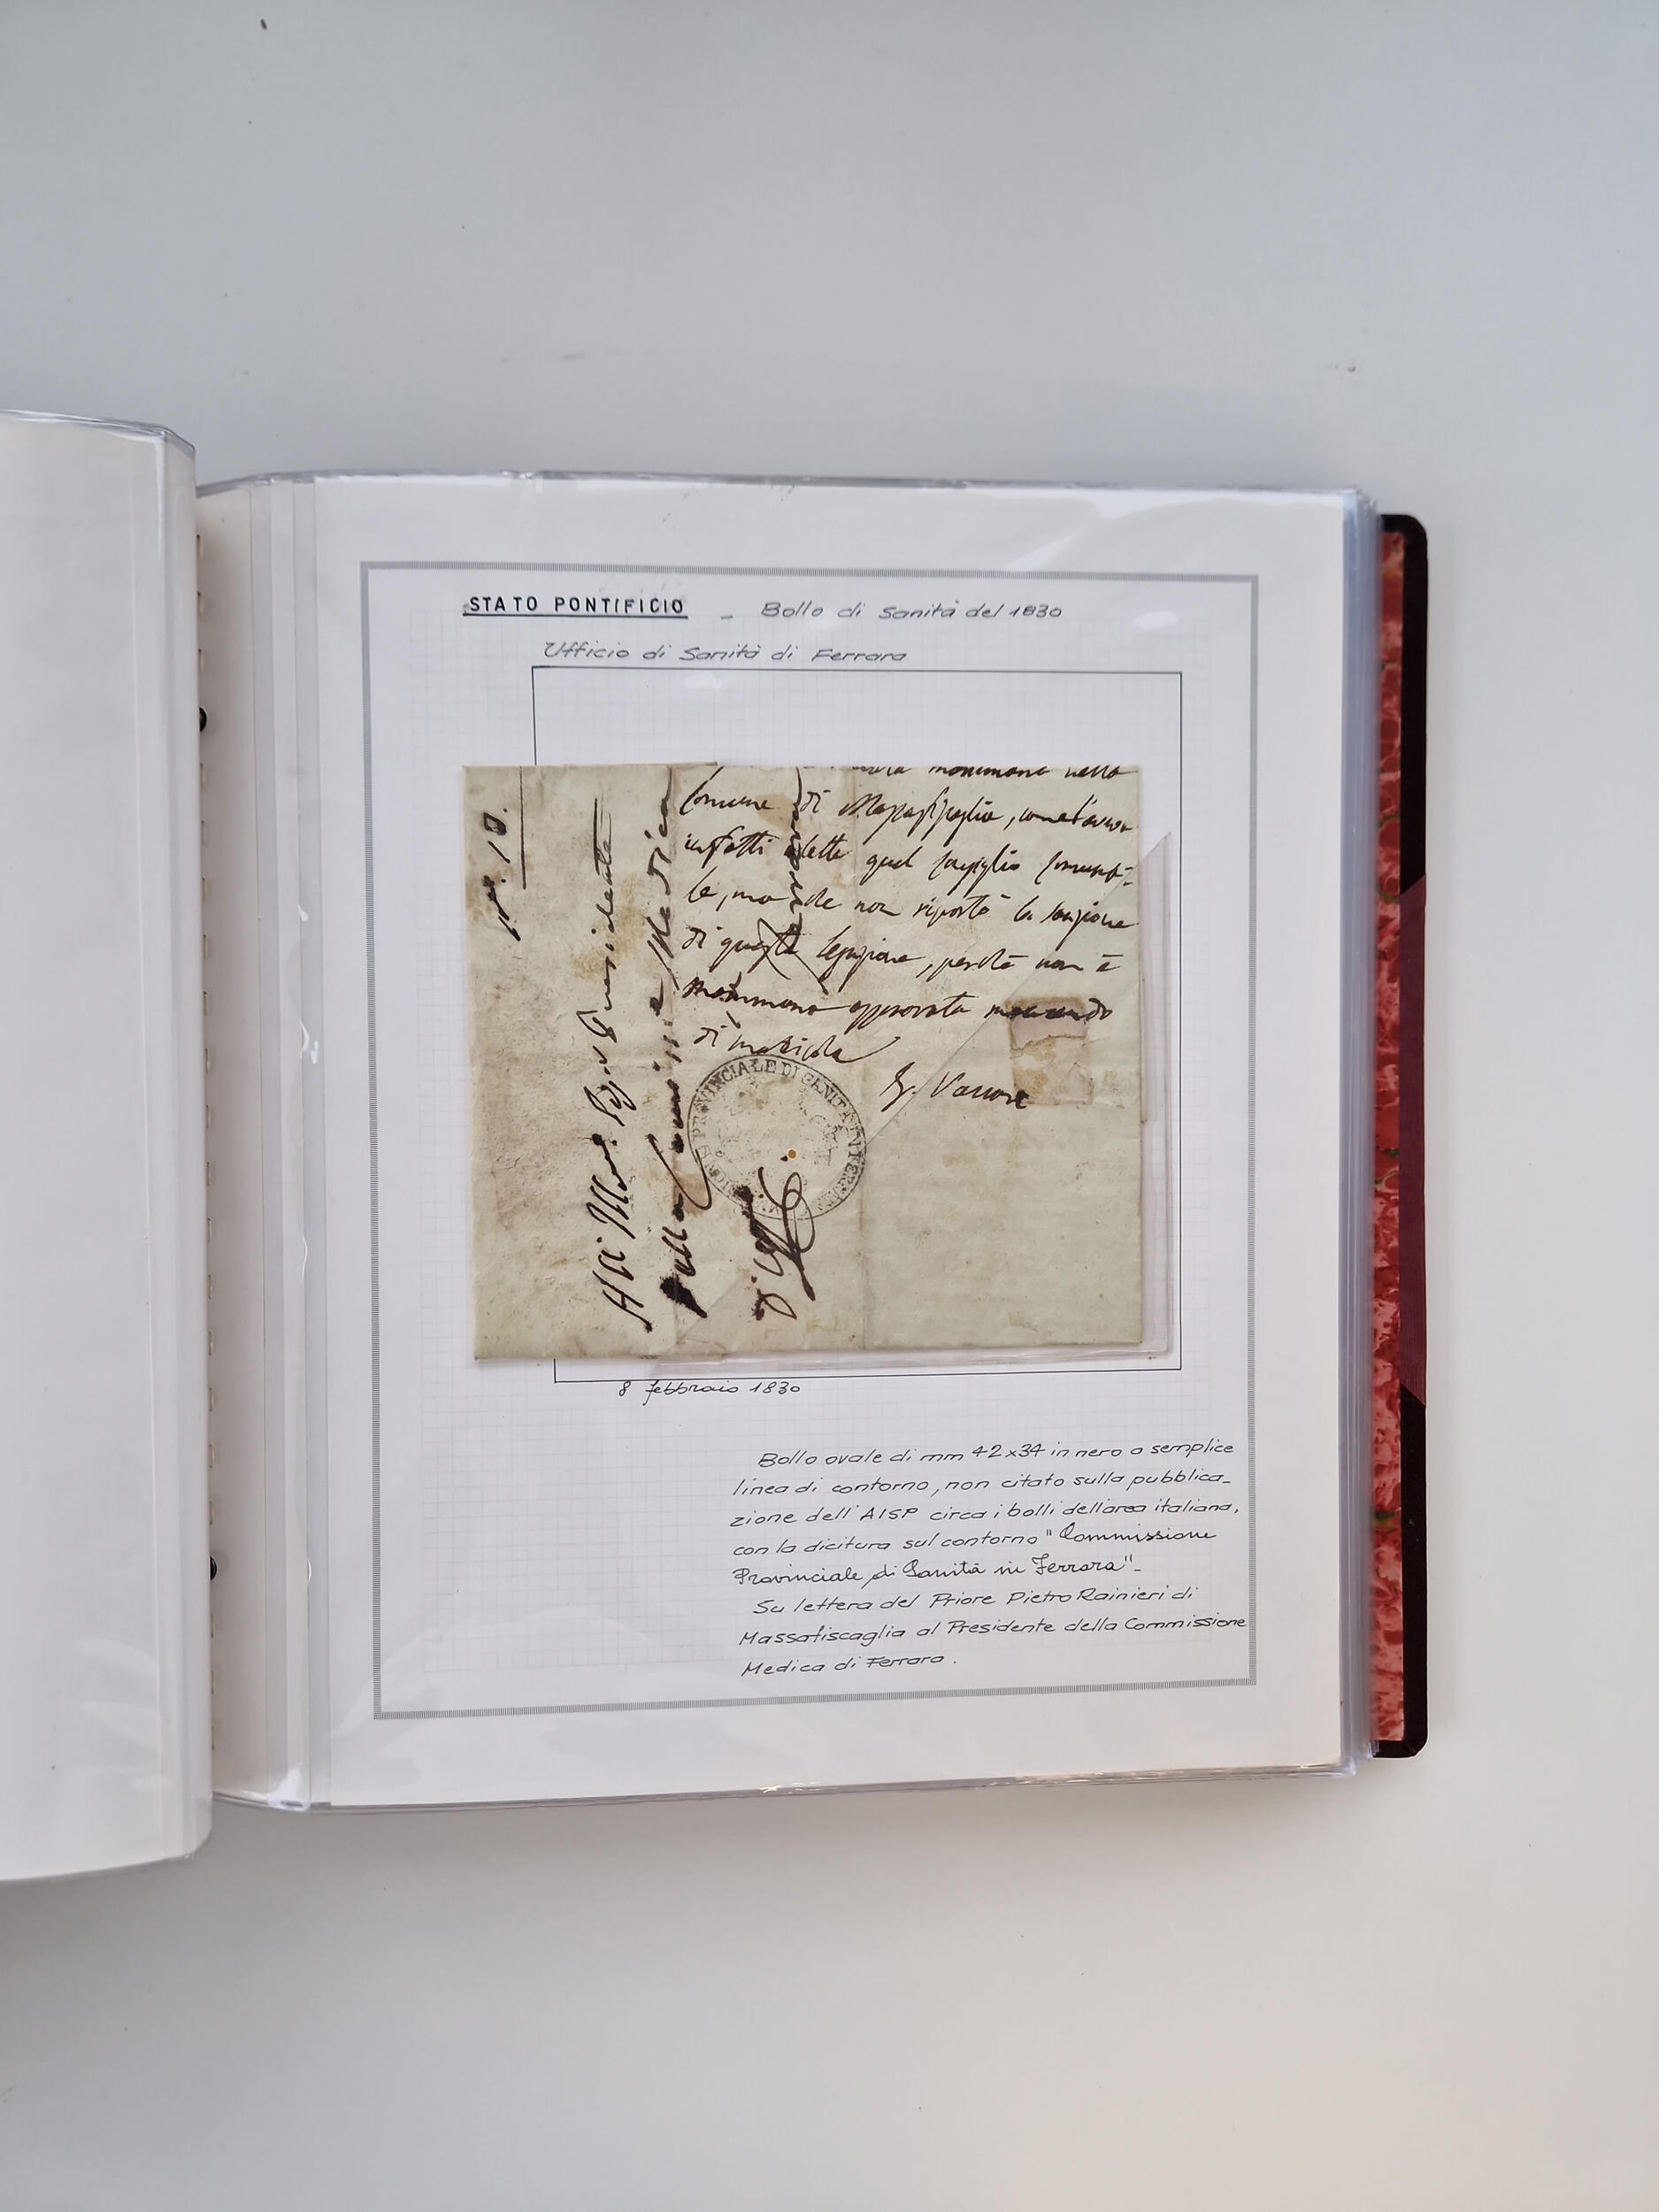 STATO PONTIFICIO - Bollo di Sanità del 1830
Ufficio di Sanità di Ferrara
mammana nella
Comune di Massafiscaglia, come l'aveva
infatti eletta quel Consiglio Comuna-
le, ma che non riportò la sanzione
di questa Legazione, perché non è
mammana approvata mancando
di matricola
G. Vanni
N.° 18.
Presidente
della Commissione Medica
Ferrara
PROVINCIALE DI SANITÀ IN FERRARA
8 febbraio 1830
Bollo ovale di mm 42x34 in nero a semplice
linea di contorno, non citato sulla pubblica-
zione dell'AISP circa i bolli dell'area italiana,
con la dicitura sul contorno "Commissione
Provinciale di Sanità in Ferrara"-
Su lettera del Priore Pietro Rainieri di
Massafiscaglia al Presidente della Commissione
Medica di Ferrara.